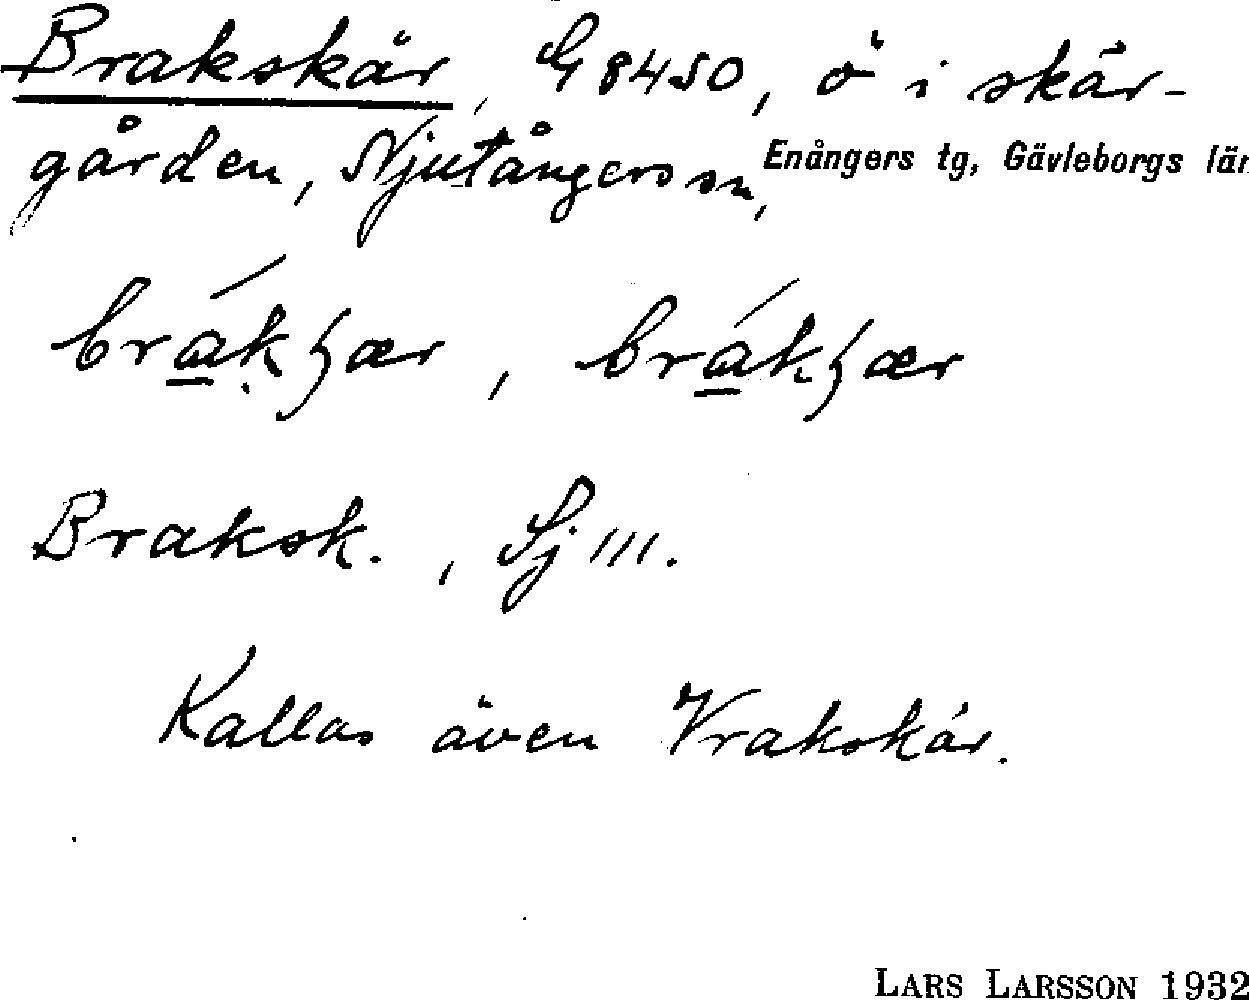 Brakskär, G 8450, ö i skär-
gården, Njutångers sn, Enångers tg, Gävleborgs län
Braksk., Sj 111.
Kallas även Vrakskär.
LARS LARSSON 1932